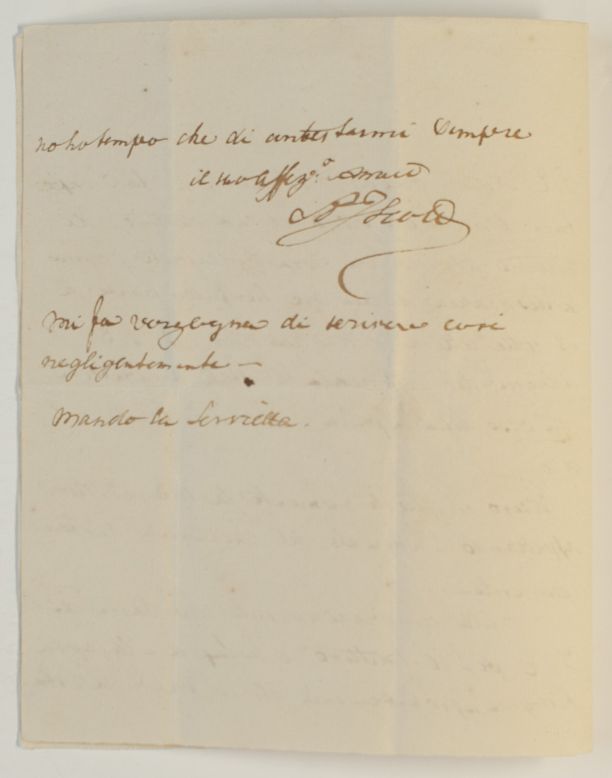 no ho tempo che di antestarmi Sempre
il suo affez.o Amico
mi fa vergogna di scrivere cosi
negligentemente —
Mando la Servietta.